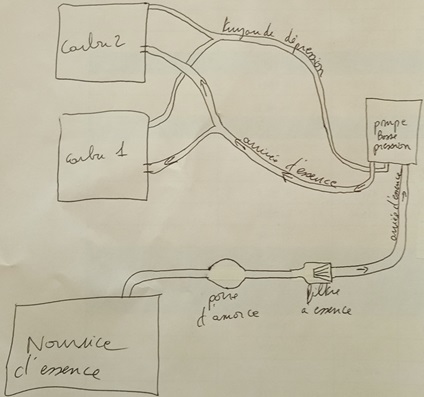 Carbu 2
tuyau de dépression
pompe
Basse
pression
Carbu 1
arrivée d'essence
arrivée d'essence
poire
d'amorce
filtre
a essence
Nourrice
d'essence